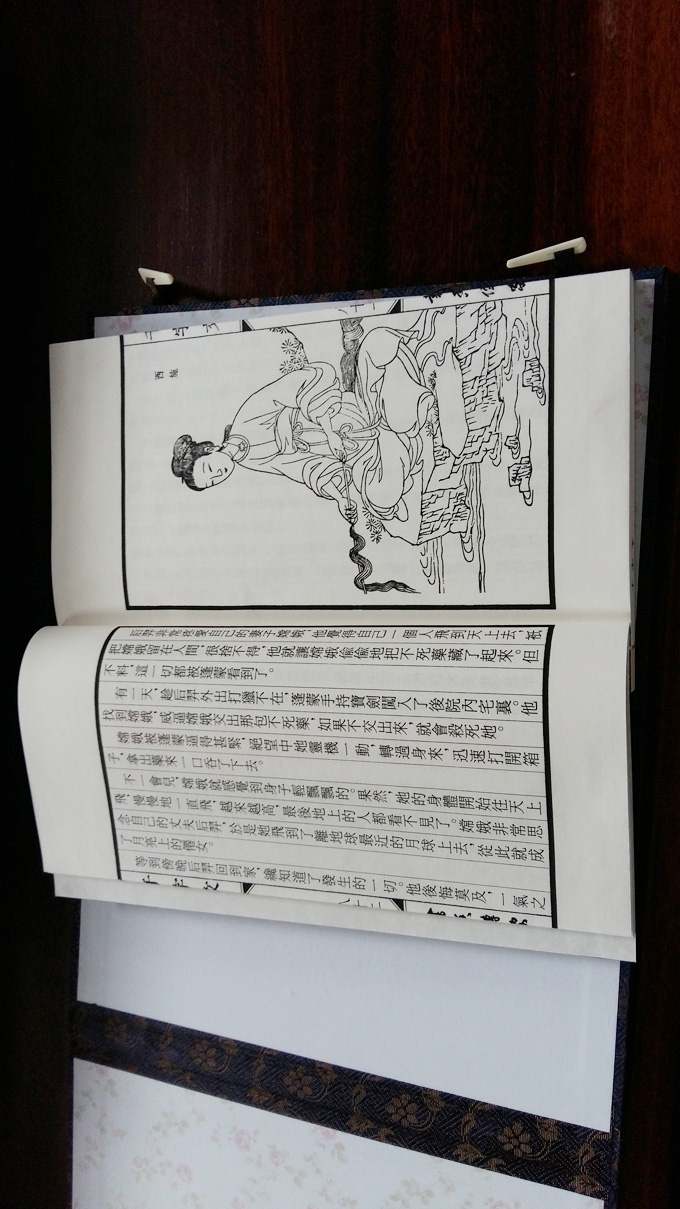 西施
后羿非常疼愛自己的妻子嫦娥,他覺得自己一個人飛到天上去,衹
把嫦娥留在人間,很捨不得,他就讓嫦娥偷偷地把不死藥藏了起來。但
不料,這一切都被蓬蒙看到了。
有一天,趁后羿外出打獵不在,蓬蒙手持寶劍闖入了後院內宅裏。他
找到嫦娥,威逼嫦娥交出那包不死藥,如果不交出來,就會殺死她。
嫦娥被蓬蒙逼得甚緊,絕望中她靈機一動,轉過身來,迅速打開箱
子,拿出藥來一口吞了下去。
不一會兒,嫦娥就感覺到身子輕飄飄的。果然,她的身體開始往天上
飛,慢慢地一直飛,越來越高,最後地上的人都看不見了。嫦娥非常思
念自己的丈夫后羿,於是她飛到了離地球最近的月球上去,從此就成
了月亮上的僊女。
等到傍晚后羿回到家,纔知道了發生的一切。他後悔莫及,一氣之
千字文